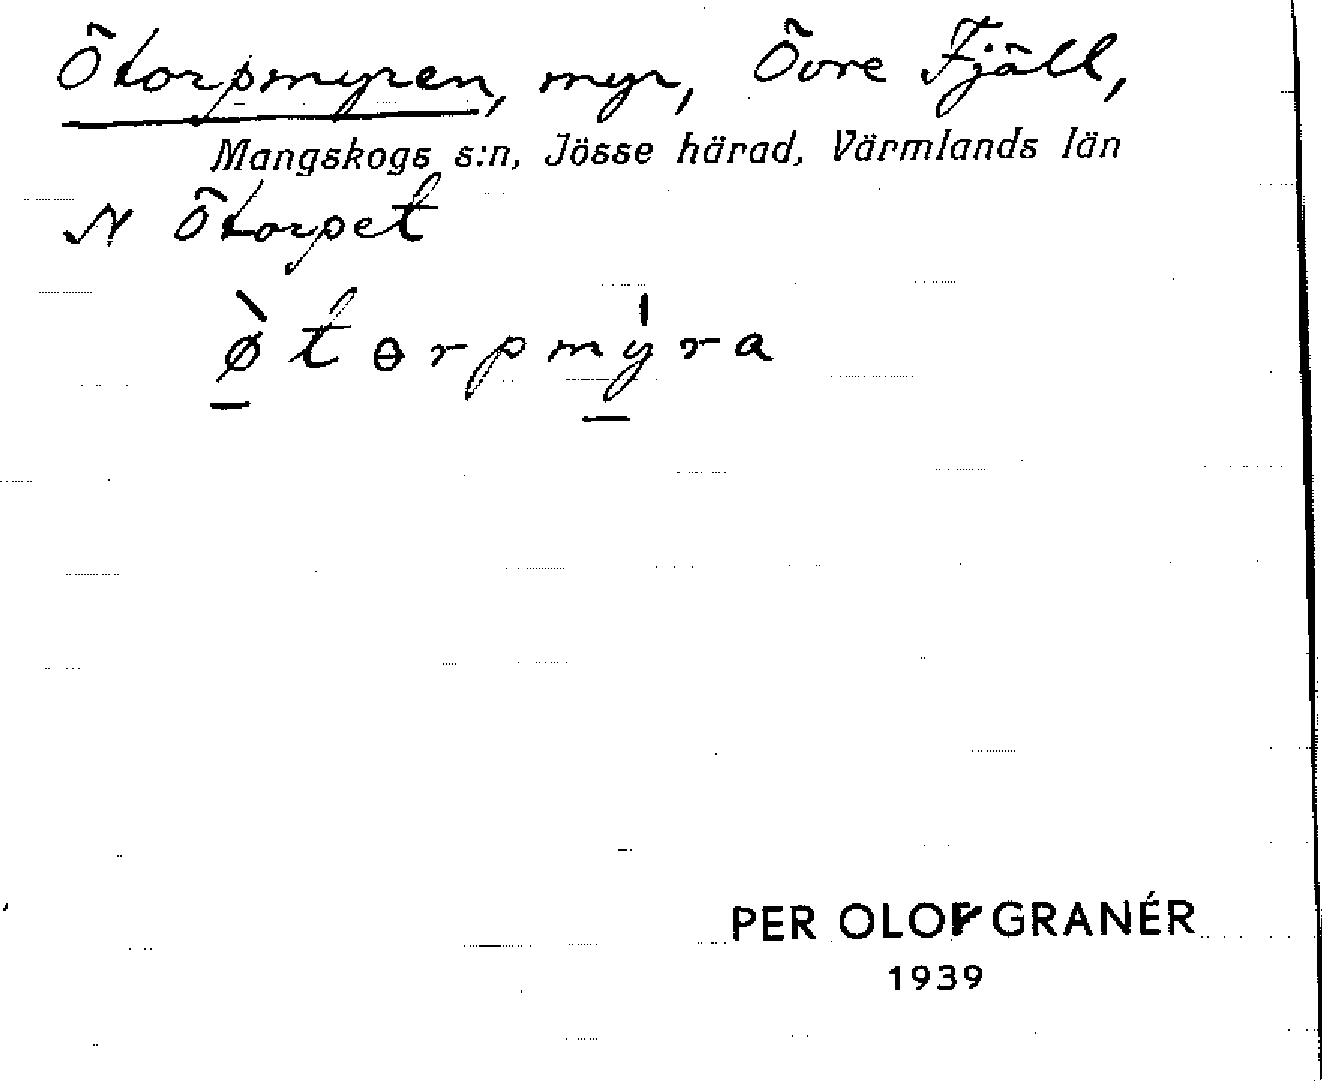 Ötorpmyren, myr, Övre Fjäll,
Mangskogs s:n, Jösse härad, Värmlands län
N Ötorpet
ø̠̀tɵrpmý̠ra
PER OLOF GRANÉR
1939